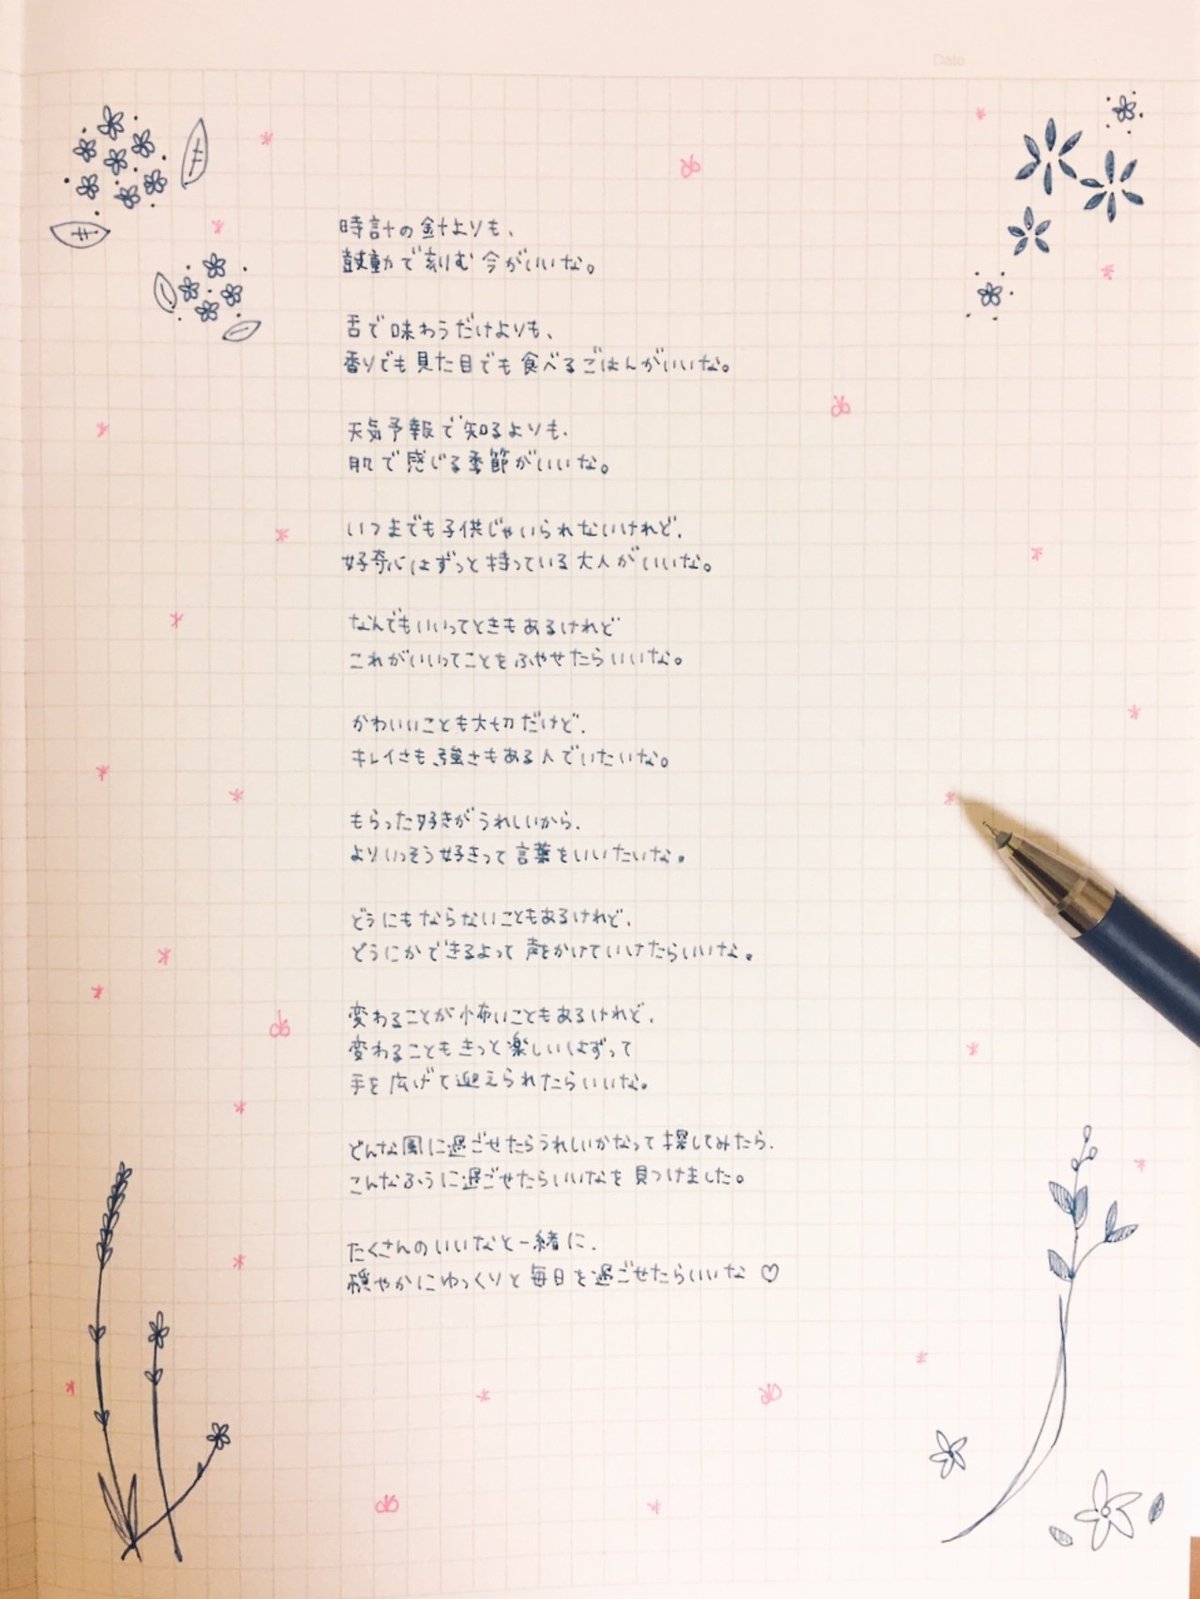 Date
時計の針よりも、
鼓動で刻む今がいいな。
舌で味わうだけよりも、
香りでも見た目でも食べるごはんがいいな。
天気予報で知るよりも、
肌で感じる季節がいいな。
いつまでも子供じゃいられないけれど、
好奇心はずっと持っている大人がいいな。
なんでもいいってときもあるけれど
これがいいってことをふやせたらいいな。
かわいいことも大切だけど、
キレイさも、強さもある人でいたいな。
もらった好きがうれしいから、
よりいっそう好きって言葉をいいたいな。
どうにもならないこともあるけれど、
どうにかできるよって声をかけていけたらいいな。
変わることが怖いこともあるけれど、
変わることもきっと楽しいはずって
手を広げて迎えられたらいいな。
どんな風に過ごせたらうれしいかなって探してみたら、
こんなふうに過ごせたらいいなを見つけました。
たくさんのいいなと一緒に、
穏やかにゆっくりと毎日を過ごせたらいいな♡